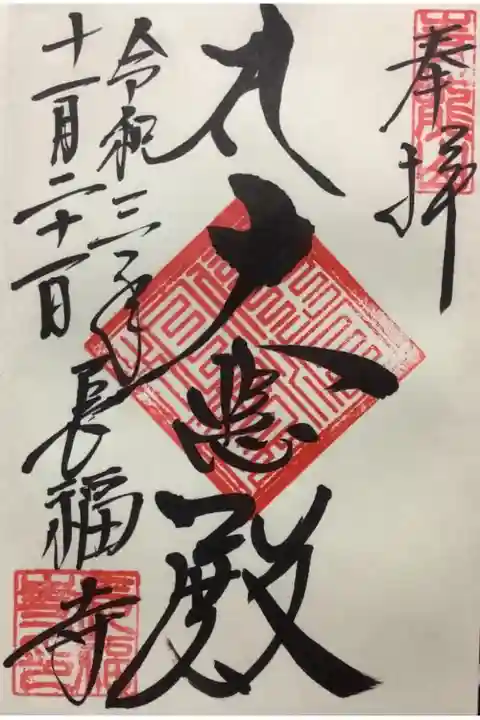 奉拝
大悲殿
令和三年
十一月二十一日
長福寺